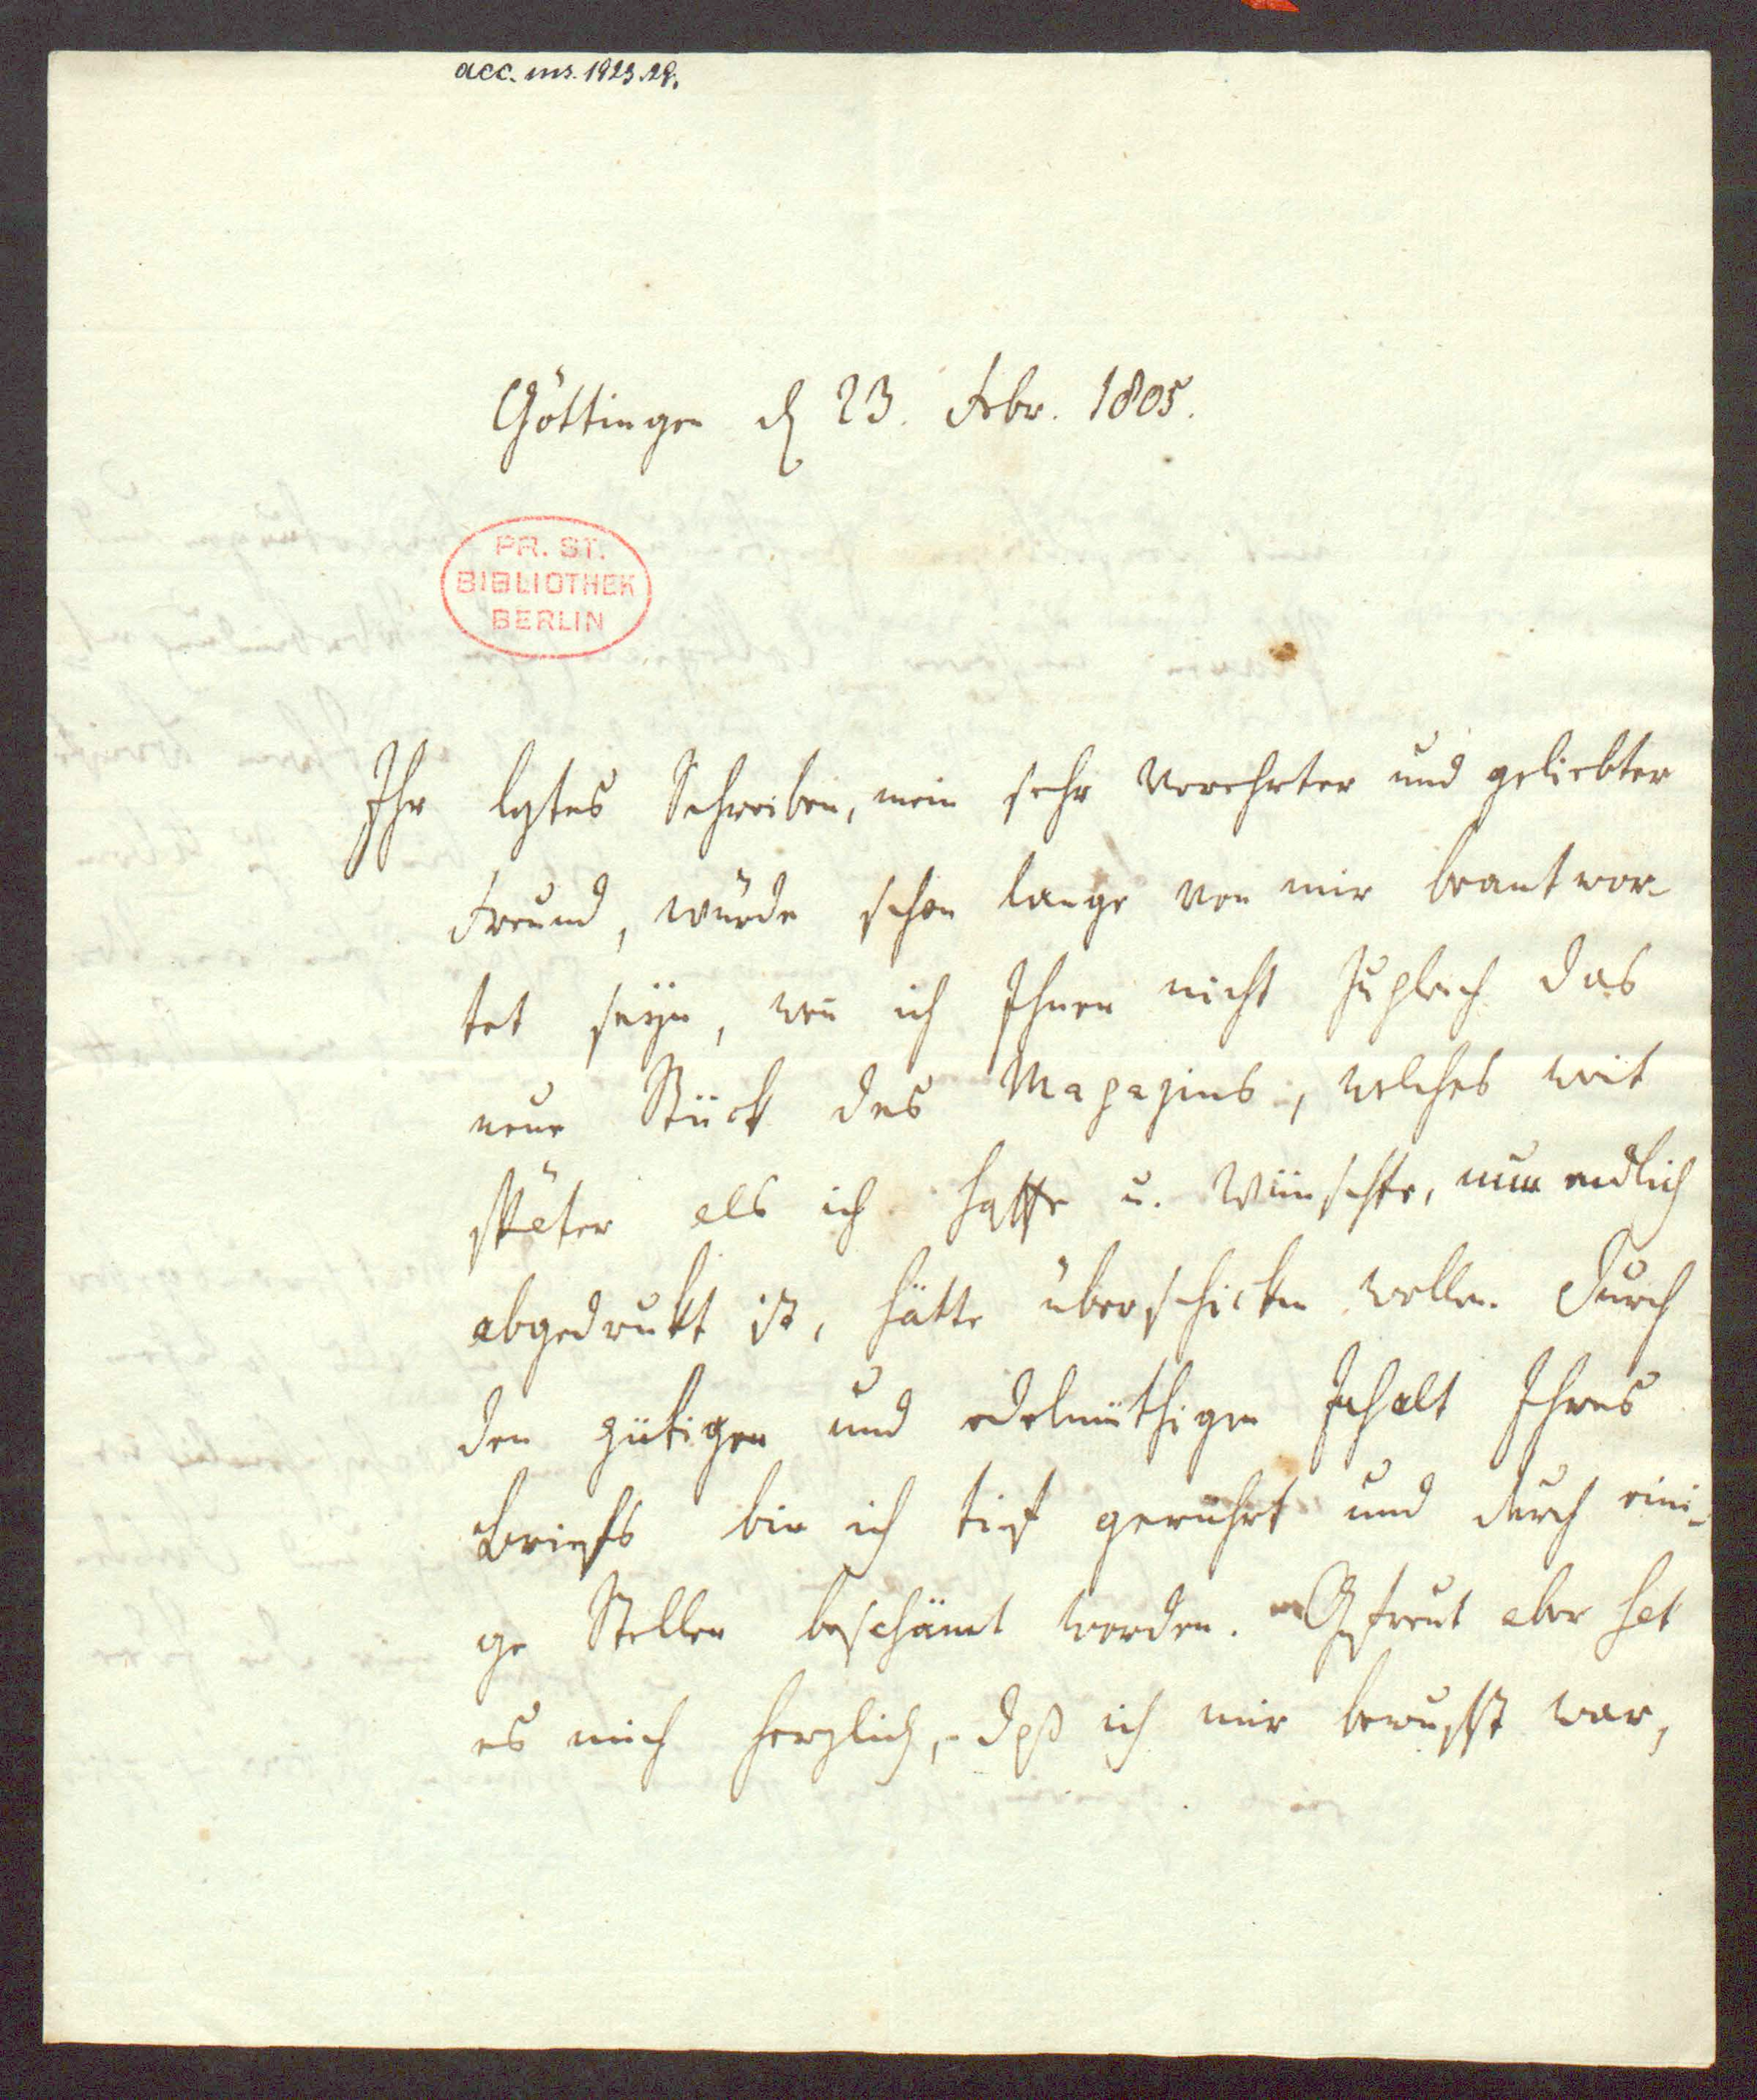 acc. ms. 1923.29.
Göttingen d 23. Febr. 1805.
PR. ST.
BIBLIOTHEK
BERLIN
Ihr lztes Schreiben, mein sehr verehrter und geliebter
Freund, würde schon lange von mir beantwor-
tet seyn, weñ ich Ihnen nicht zugleich das
neue Stück des Magazins, welches weit
später als ich hoffte u. wünschte, nun endlich
abgedrukt ist, hätte überschicken wollen. Durch
den gütigen und edelmüthigen Inhalt Ihres
Briefs bin ich tief gerührt und durch eini-
ge Stellen beschämt worden. Gefreut aber hat
es mich herzlich, daß ich mir bewußt war,